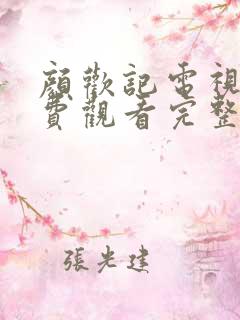 顏歡記電視
費觀看完整
張光建